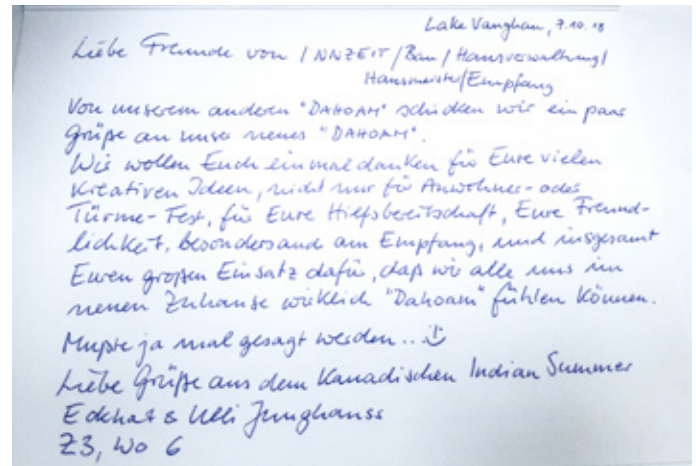 Lake Vaughan, 7.10.18
Liebe Freunde von INNZEIT/Bau/Hausverwaltung/
Hausmeister/Empfang
Von unserem anderen "DAHOAM" schicken wir ein paar
Grüße an unser neues "DAHOAM".
Wir wollen Euch einmal danken für Eure vielen
kreativen Ideen, nicht nur für Anwohner- oder
Türme-Fest, für Eure Hilfsbereitschaft, Eure Freund-
lichkeit, besonders auch am Empfang, und insgesamt
Euren großen Einsatz dafür, daß wir alle uns im
neuen Zuhause wirklich "Dahoam" fühlen können.
Mußte ja mal gesagt werden...
Liebe Grüße aus dem Kanadischen Indian Summer
& Ulli Junghanss
Z3, Wo 6